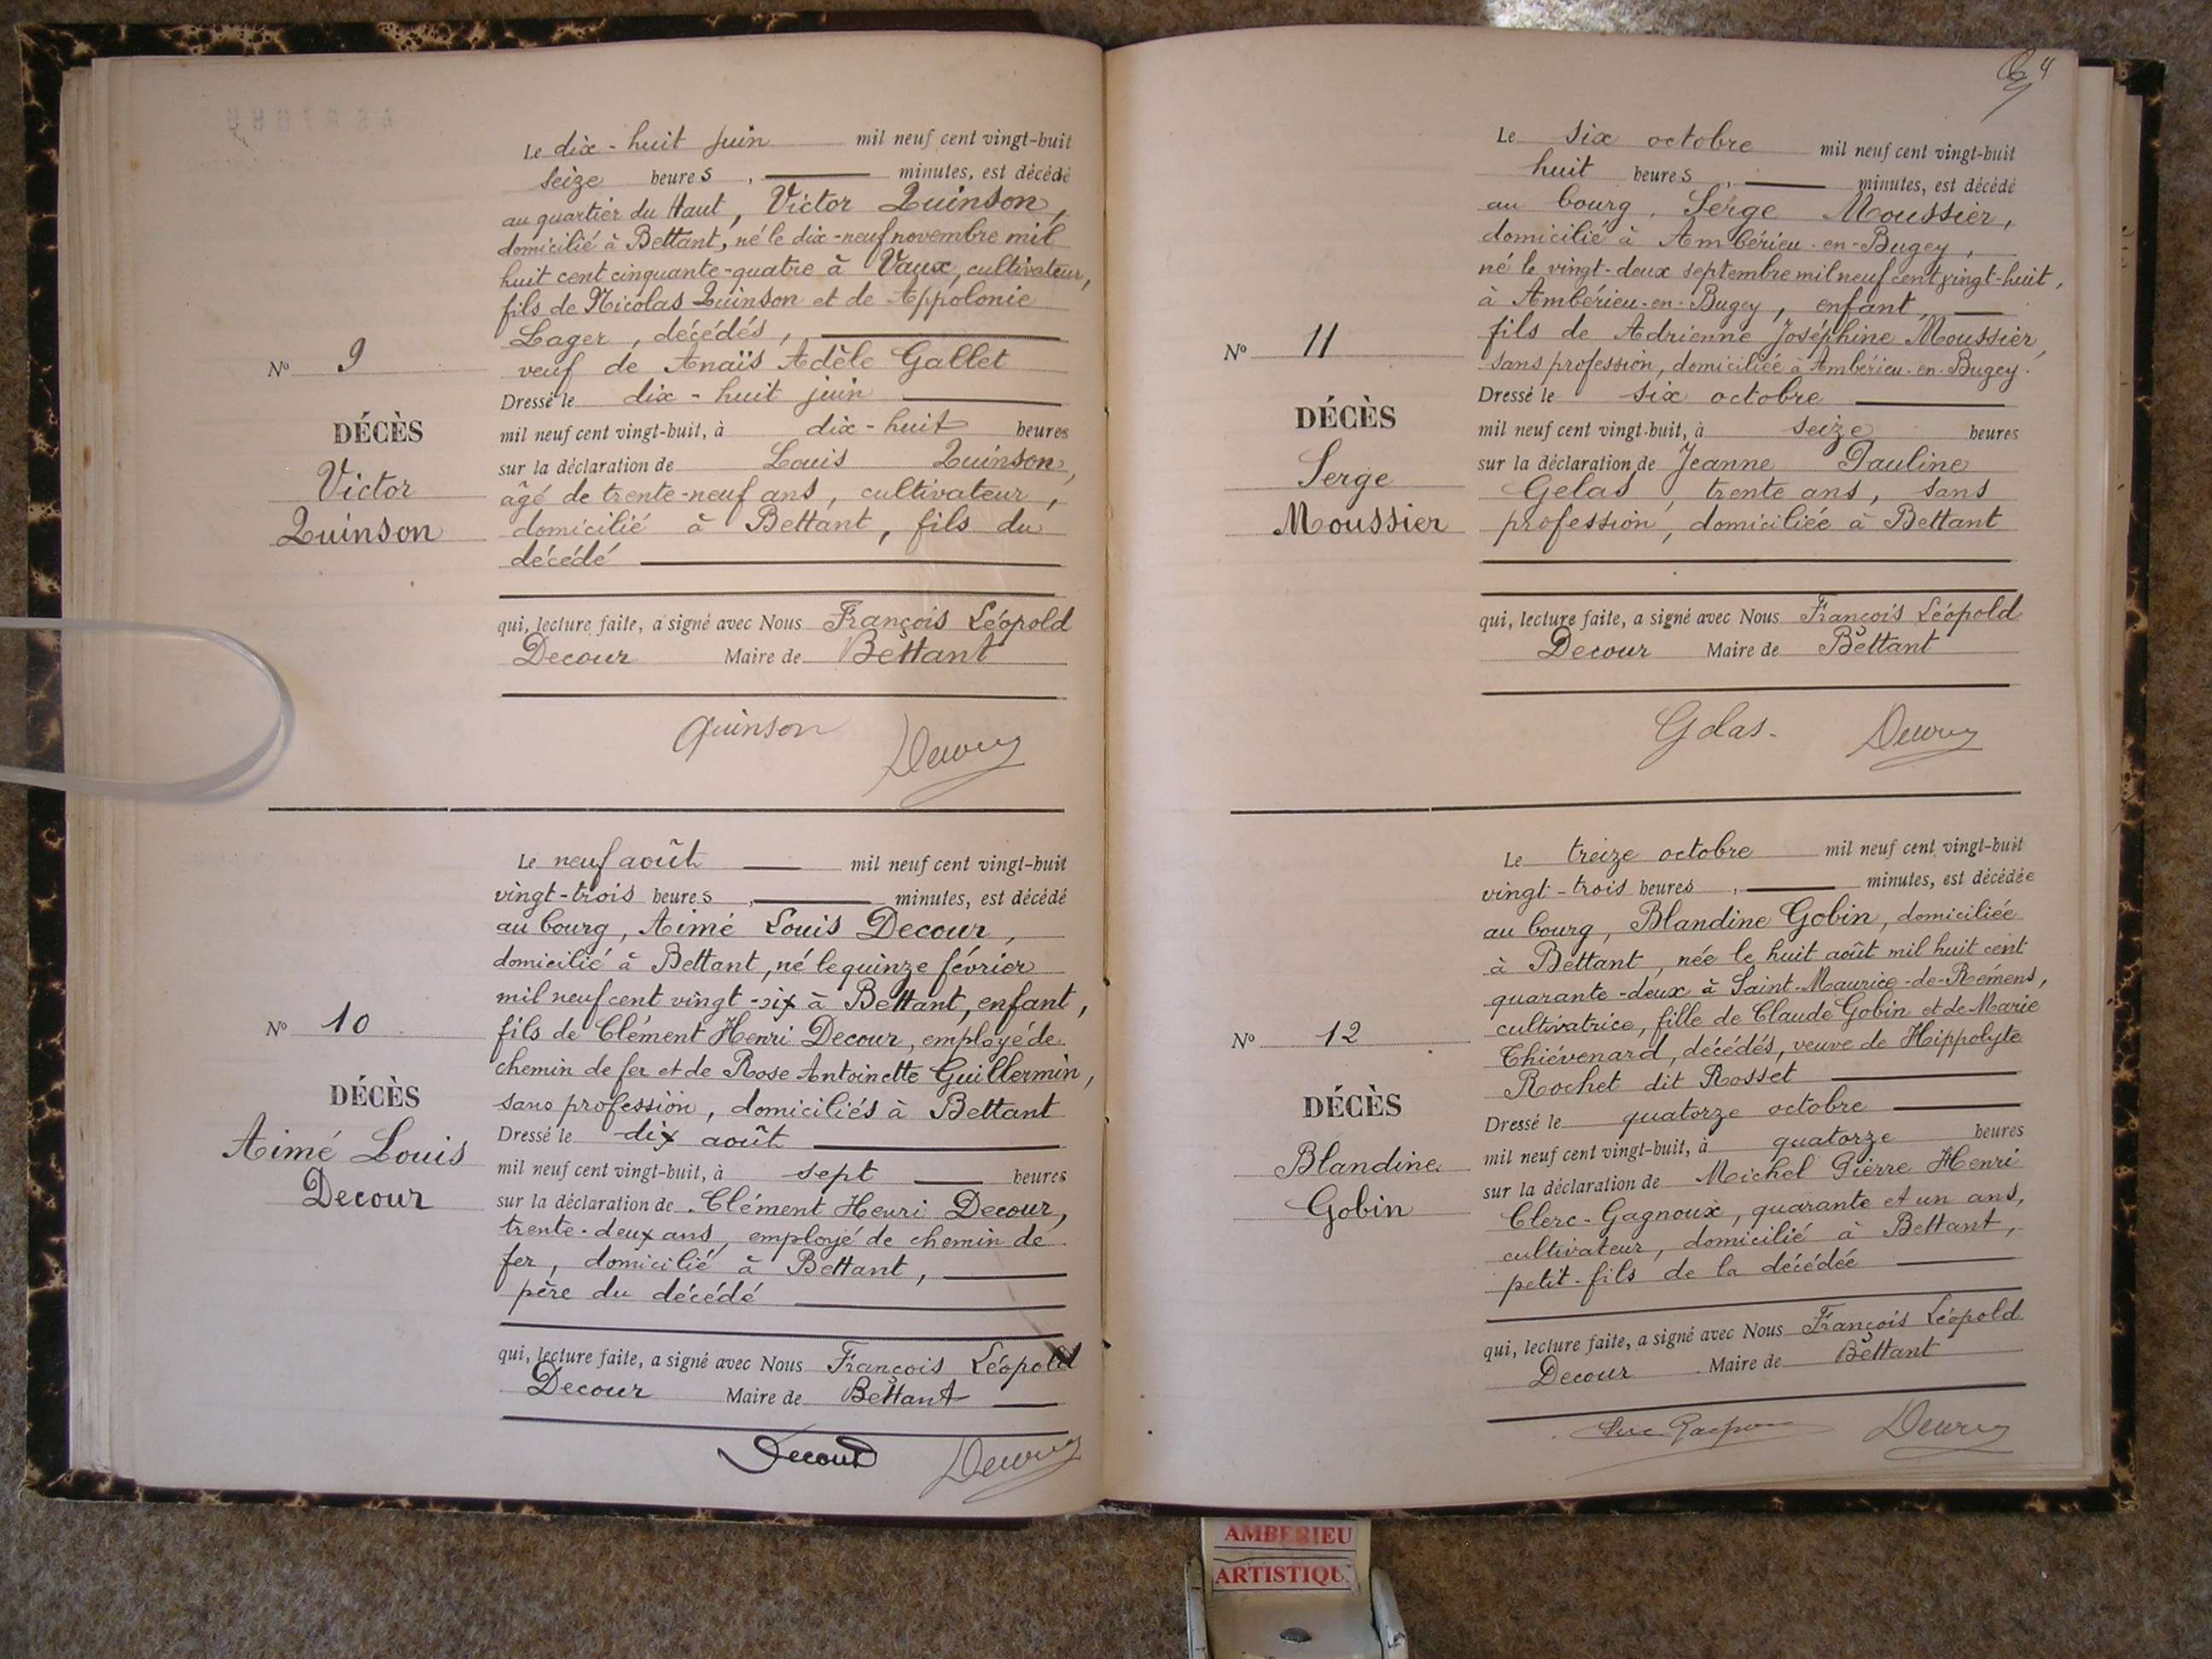 Le dix-huit juin mil neuf cent vingt-huit
seize heures, minutes, est décédé
au quartier du Haut, Victor Quinson,
domicilié à Bettant, né le dix-neuf novembre mil
huit cent cinquante-quatre à Vaux, cultivateur,
fils de Nicolas Quinson et de Appolonie
Lager, décédés,
veuf de Anaïs Adèle Gallet
Dressé le dix-huit juin
mil neuf cent vingt-huit, à dix-huit heures
sur la déclaration de Louis Quinson,
âgé de trente-neuf ans, cultivateur,
domicilié à Bettant, fils du
décédé
qui, lecture faite, a signé avec Nous François Léopold
Decour Maire de Bettant
Quinson
N° 9
DÉCÈS
Victor
Quinson
Le neuf août mil neuf cent vingt-huit
vingt-trois heures, minutes, est décédé
au bourg, Aimé Louis Decour,
domicilié à Bettant, né le quinze février
mil neuf cent vingt-six à Bettant, enfant,
fils de Clément Henri Decour, employé de
chemin de fer et de Rose Antoinette Guillermin,
sans profession, domiciliés à Bettant
Dressé le dix août
mil neuf cent vingt-huit, à sept heures
sur la déclaration de Clément Henri Decour,
trente-deux ans, employé de chemin de
fer, domicilié à Bettant,
père du décédé
qui, lecture faite, a signé avec Nous François Léopold
Decour Maire de Bettant
Decour
N° 10
DÉCÈS
Aimé Louis
Decour
4
Le six octobre mil neuf cent vingt-huit
huit heures, minutes, est décédé
au bourg, Serge Moussier,
domicilié à Ambérieu-en-Bugey,
né le vingt-deux septembre mil neuf cent vingt-huit,
à Ambérieu-en-Bugey, enfant,
fils de Adrienne Joséphine Moussier,
sans profession, domiciliée à Ambérieu-en-Bugey.
Dressé le six octobre
mil neuf cent vingt-huit, à seize heures
sur la déclaration de Jeanne Pauline
Gelas, trente ans, sans
profession, domiciliée à Bettant
qui, lecture faite, a signé avec Nous François Léopold
Decour Maire de Bettant
Gelas
N° 11
DÉCÈS
Serge
Moussier
Le treize octobre mil neuf cent vingt-huit
vingt-trois heures, minutes, est décédée
au bourg, Blandine Gobin, domiciliée
à Bettant, née le huit août mil huit cent
quarante-deux à Saint-Maurice-de-Rémens,
cultivatrice, fille de Claude Gobin et de Marie
Thiévenard, décédés, veuve de Hippolyte
Rochet dit Rosset
Dressé le quatorze octobre
mil neuf cent vingt-huit, à quatorze heures
sur la déclaration de Michel Pierre Henri
Clerc-Gagnoux, quarante et un ans,
cultivateur, domicilié à Bettant,
petit-fils de la décédée
qui, lecture faite, a signé avec Nous François Léopold
Decour Maire de Bettant
N° 12
DÉCÈS
Blandine
Gobin
AMBERIEU
ARTISTIQU